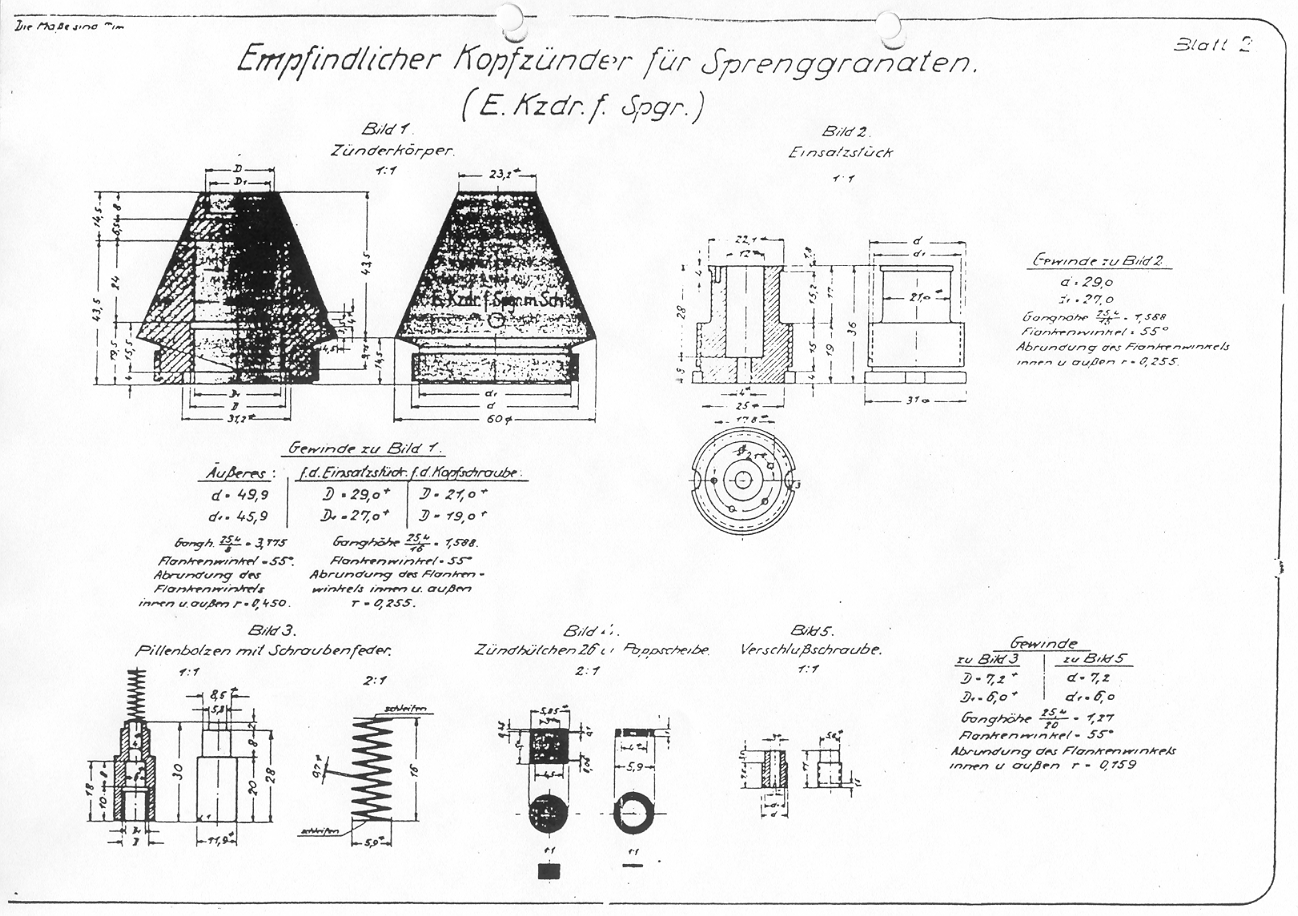 Die Maße sind mm
Blatt 2
Empfindlicher Kopfzünder für Sprenggranaten.
(E. Kzdr. f. Spgr.)
Bild 1.
Zünderkörper.
1:1
D
D₁
14,5
8
6,5
24
43,5
19,5
15,5
4
43,5
4,5
14,5
D₁
D
31,2
23,2
E. Kzdr. f. Spgr. m.
d₁
d
60
Bild 2.
Einsatzstück
1:1
22,1
12
4
28
15,2
17
15
19
36
4
25
17,8
d
d₁
21,0
31
Gewinde zu Bild 2
d = 29,0
d₁ = 27,0
Ganghöhe 25,4 = 1,588
Flankenwinkel = 55°
Abrundung des Flankenwinkels
innen u. außen r = 0,255.
Gewinde zu Bild 1.
Äußeres: f.d. Einsatzstück f.d. Kopfschraube.
d = 49,9 D = 29,0⁺ D = 21,0⁺
d₁ = 45,9 D₁ = 27,0⁺ D = 19,0⁺
Gangh. 25,4/8 = 3,175 Ganghöhe 25,4/16 = 1,588.
Flankenwinkel = 55°. Flankenwinkel = 55°
Abrundung des Abrundung des Flanken-
Flankenwinkels winkels innen u. außen
innen u. außen r = 0,450. r = 0,255.
Bild 3.
Pillenbolzen mit Schraubenfeder.
1:1
2:1
8,5
5,8
8
18
10
30
20
28
D₁
D
11,9
schleifen
16
schleifen
5,9
Bild
Zündhütchen 26 Pappscheibe.
2:1
5,85
4,5
5,9
1:1
1:1
Bild 5.
Verschlußschraube.
1:1
d₁
d
Gewinde
zu Bild 3 zu Bild 5
D = 7,2⁺ d = 7,2
D₁ = 6,0⁺ d₁ = 6,0
Ganghöhe 25,4/20 = 1,27
Flankenwinkel = 55°
Abrundung des Flankenwinkels
innen u außen r = 0,159